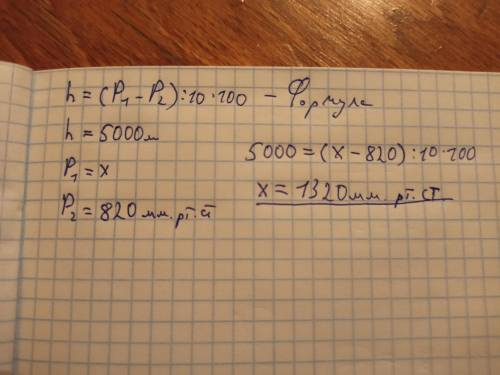 h = (P₁ - P₂) : 10 · 100 - Формула
h = 5000м
P₁ = x
P₂ = 820 мм. рт. ст
5000 = (x - 820) : 10 · 100
x = 1320 мм. рт. ст